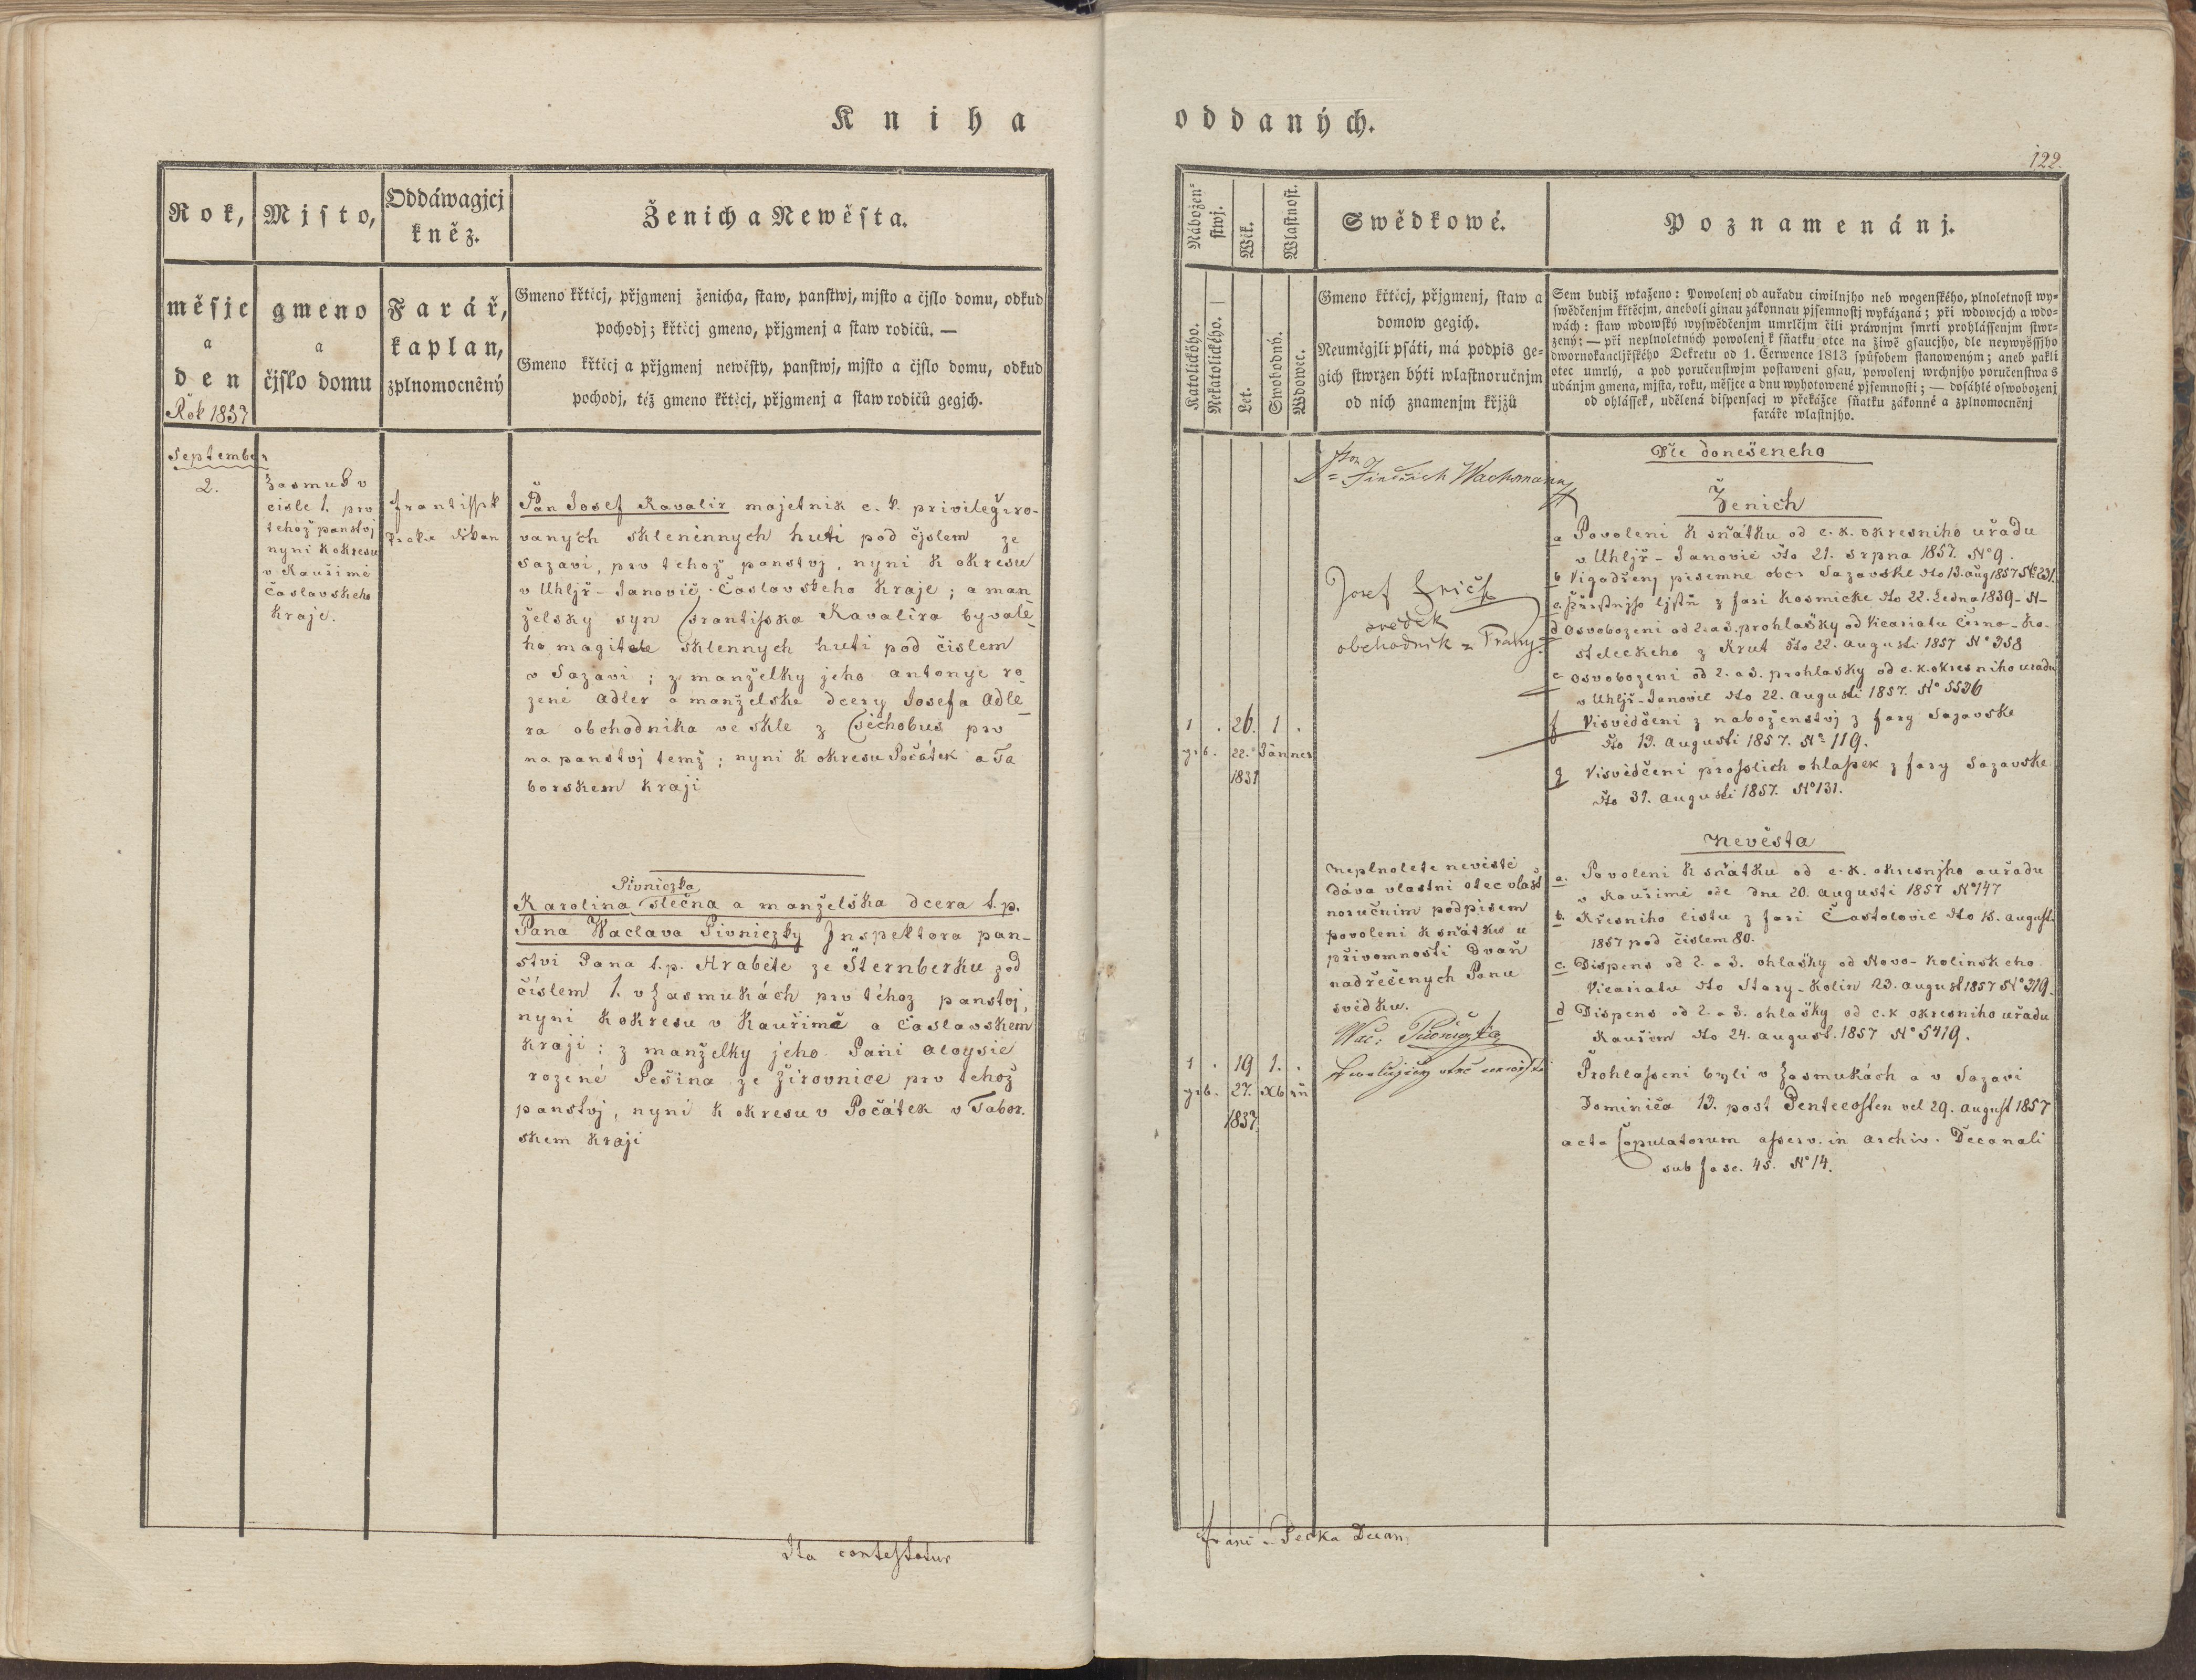 Kniha
oddaných.
122.
Rok,
měsjc
a
den
Rok 1857
Mjsto,
gmeno
a
čjslo domu
Oddáwagjcj
kněz.
Farář,
kaplan,
zplnomocněný
Ženich a Newěsta.
Gmeno křtěcj, přjgmenj ženicha, staw, panstwj, mjsto a čjslo domu, odkud
pochodj; křtěcj gmeno, přjgmenj a staw rodičů. —
Gmeno křtěcj a přjgmenj newěsty, panstwj, mjsto a čjslo domu, odkud
pochodj, též gmeno křtěcj, přjgmenj a staw rodičů gegjch.
September
2.
Zasmuk v
cisle 1. prv
tehož panstvj
nyni k okresu
v Kauřimě
Časlavskeho
kraje.
Frantissek
Pecka děkan
Pan Josef Kavalir majetnik c. k. privilegiro-
vanych sklenènnych huti pod čjslem ze
Sazavi, prv tehož panstvj, nyni k okresu
v Uhljř-Janovič, Časlavskeho Kraje; a man
želsky syn Frantisska Kavalira byvalé-
ho magitele sklennych huti pod čislem
v Sazavi; z manželky jeho antonye ro-
zené Adler a manželske dcery Josefa Adle-
ra obchodnika ve skle z Čechobus prv
na panstvj temž; nyni k okresu Počátek a Ta
borskem kraji
Pivniczka
Karolina slečna a manželska dcera t.p.
Pana Waclava Pivniczky Inspektora pan-
stvi Pana t.p. Hraběte ze Šternberku pod
číslem 1. v Zasmukách prv téhoz panstvj,
nyni k okresu v Kauřimě a Časlavskem
kraji: z manželky jeho Pani Aloysie
rozené Pešina ze Žirovnice prv tehož
panstvj, nyni k okresu v Počátek v Tabor.
skem kraji
Ita contestatur
Nábožen-
stwj.
Wěk.
Wlastnost.
Katolického.
Nekatolického.
Let.
Swobodný.
Wdowec.
Swědkowé.
Gmeno křtěcj, přjgmenj, staw a
domow gegich.
Neuměgjli psáti, má podpis ge-
gich stwrzen býti wlastnoručnjm
od nich znamenjm křjžů
Poznamenánj.
Sem budiž wtaženo: Powolenj od auřadu ciwilnjho neb wogenského, plnoletnost wy-
swědčenjm křtěcjm, aneboli ginau zákonnau pjsemnostj wykázaná; při wdowcjch a wdo-
wách: staw wdowský wyswědčenjm umrlčjm čili práwnjm smrti prohlássenjm stwr-
zený: — při neplnoletných powolenj k sňatku otce na žiwě gsaucjho, dle neywyššjho
dwornokancljřského Dekretu od 1. Července 1813 spůsobem stanoweným; aneb pakli
otec umrlý, a pod poručenstwjm postaweni gsau, powolenj wrchnjho poručenstwa s
udánjm gmena, mjsta, roku, měsjce a dnu wyhotowené pjsemnosti; — dosáhlé oswobozenj
od ohlássek, udělená dispensacj w překážce sňatku zákonné a zplnomocněnj
faráře wlastnjho.
1 . 26. 1 .
geb. 22. Jännes
1831
1 . 19 1. .
geb. 27. Xb rn
1837
Jindřich Wachsmann
Josef Frič
svědek
obchodník z Prahy
Neplnolete nevěstě
dáva vlastni otec vlast
noručnim podpisem
povoleni k sňátku u
přivomnosti Dvau
nadřečenych Panu
svědku.
Wác: Pivniczka
Dle donešeneho
Ženich
a Povoleni k sňátku od c. k. okresniho uřadu
v Uhljř-Janovic dto 21. srpna 1857. No 9.
b Vigadřenj pisemne obci Sazavske dto 13. aug 1857 No 231.
c. Křestnjho ljstu z fari Kosmicke dto 22. Ledna 1839 - N-
d Osvobozeni od 2. a 3. prohlašky od Vicariatu Černo-Ko-
steleckeho z Krut dto 22. augusti 1857 No 358
e Osvobozeni od 2. a 3. prohlašky od c. k. okresniho uřadu
v Uhljř-Janovic dto 22. augusti 1857. No 5536
f Visvědčeni z naboženstvj z fary Sazavske
dto 13. augusti 1857. No 119.
g Visvědčeni prosslich ohlašek z fary Sazavske
dto 31. augusti 1857. No 131.
Nevěsta
a. Povoleni k sňátku od c. k. okresnjho auřadu
v Kauřimě ode dne 20. augusti 1857 No 147
b. Křesniho listu z fari Častolovic dto 15. august
1857 pod čislem 80.
c. Dispens od 2. a 3. ohlašky od Novo-Kolinskeho
Vicariatu dto Stary-Kolin 23. august 1857 No 319.
d Dispens od 2. a 3. ohlašky od c. k okresniho uřadu
Kauřim dto 24. august. 1857 No 5419.
Prohlasseni byli v Zasmukách a v Sazavi
Dominica 13. post Pentecosten vel 29. august 1857
acta Copulatorum asserv. in archiv. Decanali
sub fasc. 45. No 14.
Franc. Pecka Decan,